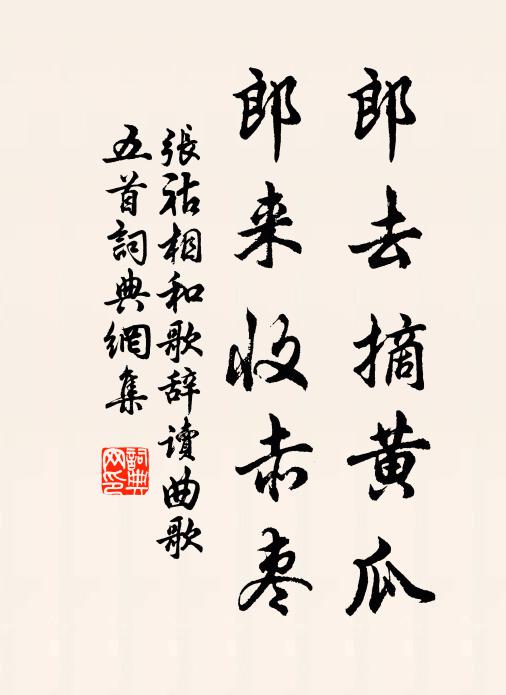 郎去摘黄瓜
郎来收赤枣
張祜相和歌辞讀曲歌
五首詞典網集
詞典网印